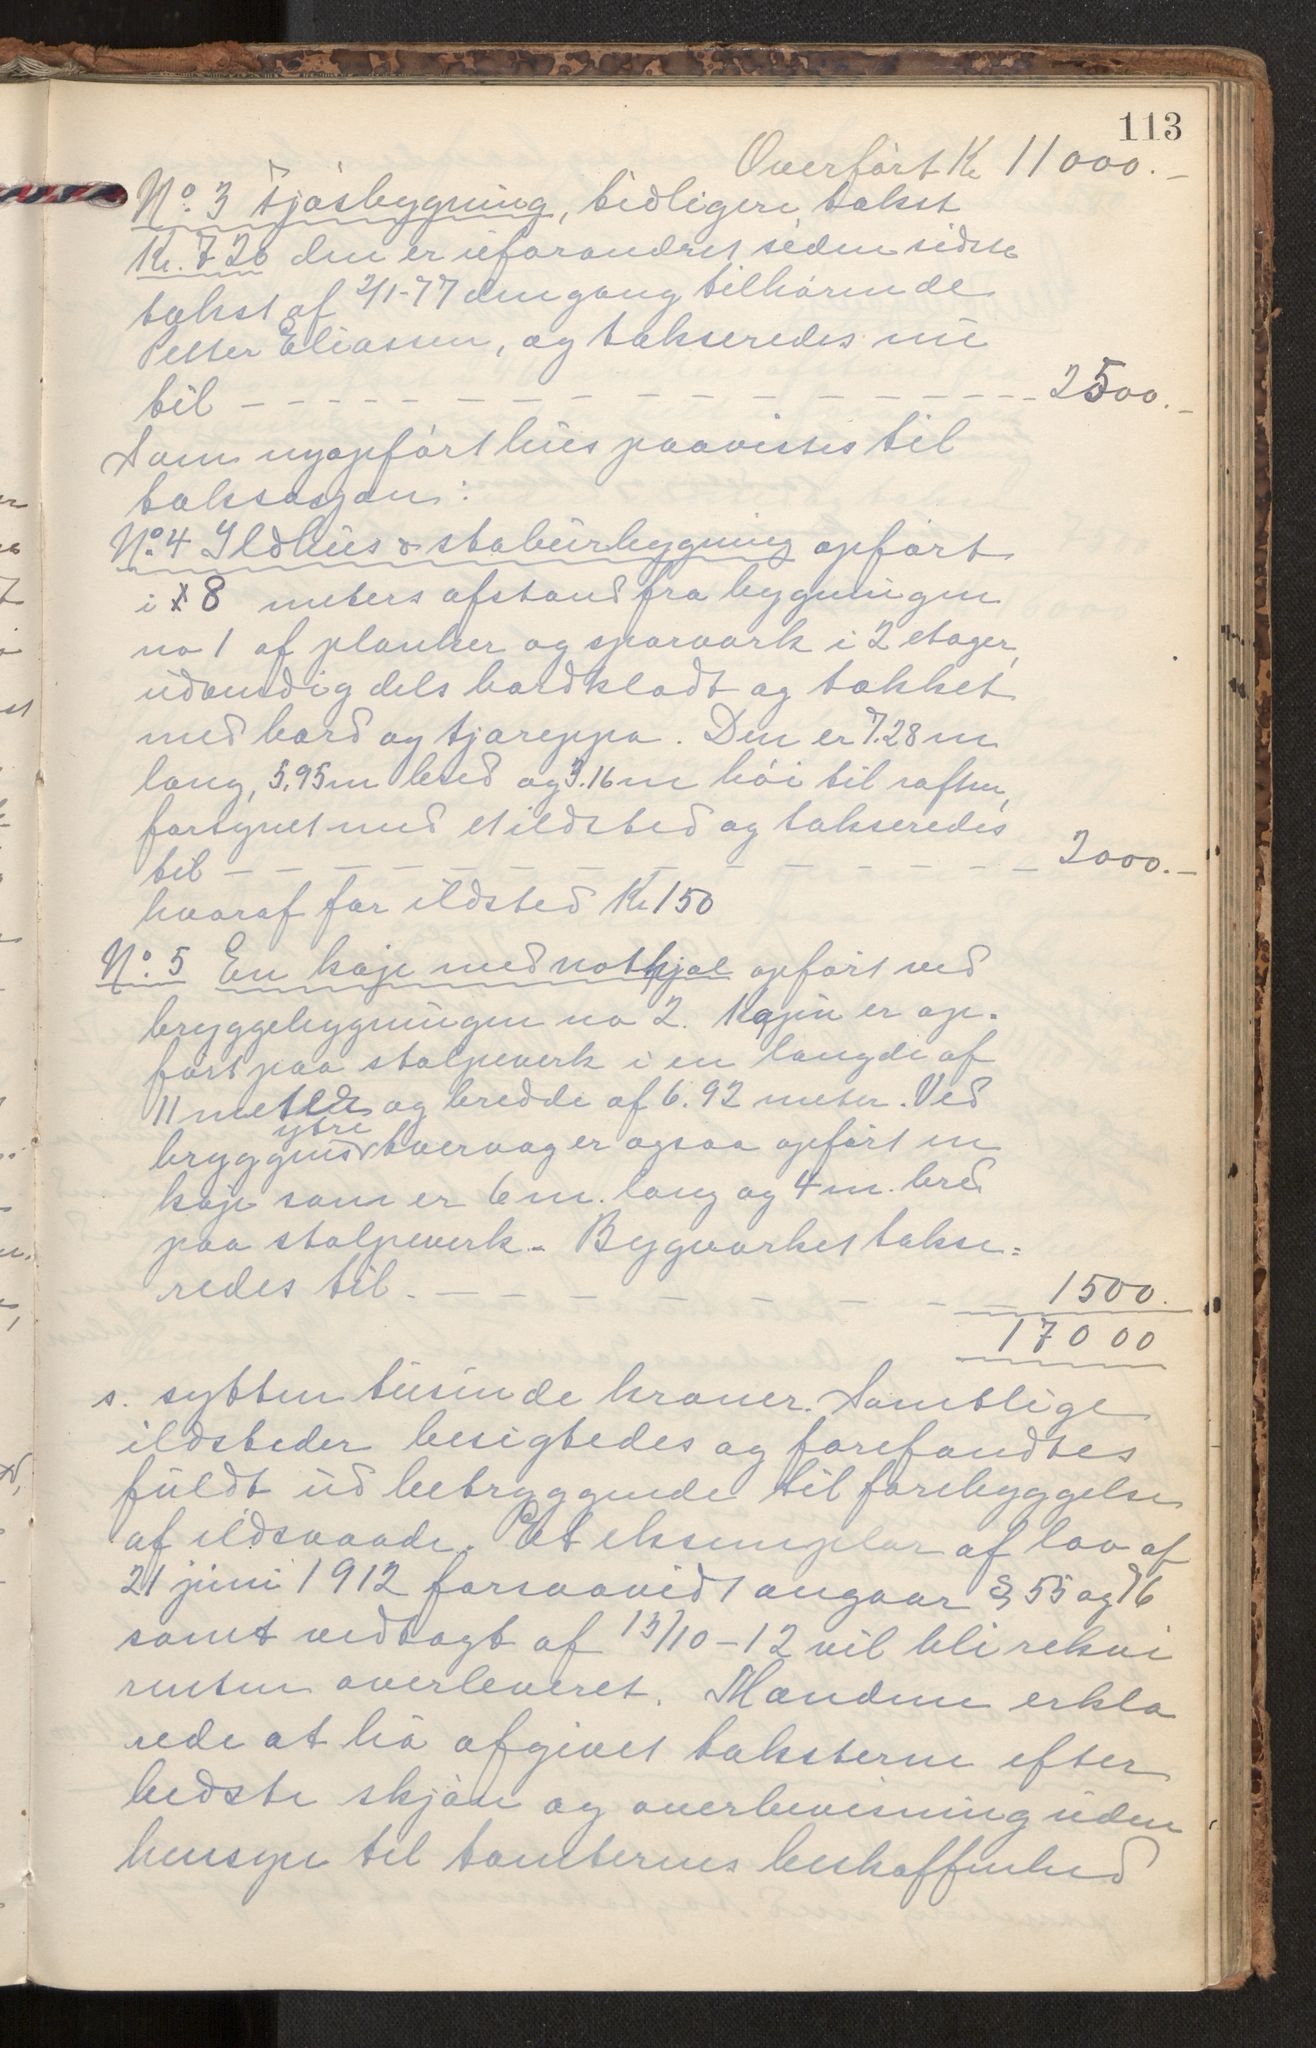 113
Overført Kr 11000.-
No. 3 Fjøsbygning, tidligere takst
Kr. 720 den er uforandret siden sidste
takst af 2/1-77 dengang tilhørende
Petter Eliassen, og takseredes nu
til - - - - - - - - - - - - - - - - 2500.-
Som nyopført hus paavistes til
taksasjon:
No. 4 Ildhus & staburbygning opført
i 8 meters afstand fra bygningen
no 1 af planker og sparværk i 2 etager,
udvendig dels bordklædt og tækket
med bord og tjærepap. Den er 7.28 m
lang, 5,95 m bred og 3.16 m høi til raften,
forsynet med et ildsted og takseredes
til - - - - - - - - - - - - - - 2000.-
hvoraf for ildsted Kr 150
No. 5 En kaje med nothjel opført ved
bryggebygningen no 2. Kajen er op-
ført paa stolpeverk i en længde af
11 meter og bredde af 6.92 meter. Ved
ytre
bryggens tvervæg er ogsaa opført en
kaje som er 6 m. lang og 4 m. bred
paa stolpeverk - Bygværket takse=
redes til. - - - - - - - - - 1500.
17000
s. sytten tusinde kroner. Samtlige
ildsteder besigtedes og forefandtes
fuldt ud betryggende til forebyggelse
af ildsvaade. Et eksemplar af lov af
21 juni 1912 forsaavidt angaar § 55 og 76
samt vedtægt af 13/10-12 vil bli rekvi
renten overleveret. Mændene erklæ
rede at ha afgivet taksterne efter
bedste skjøn og overbevisning uden
hensyn til tomternes beskaffenhed